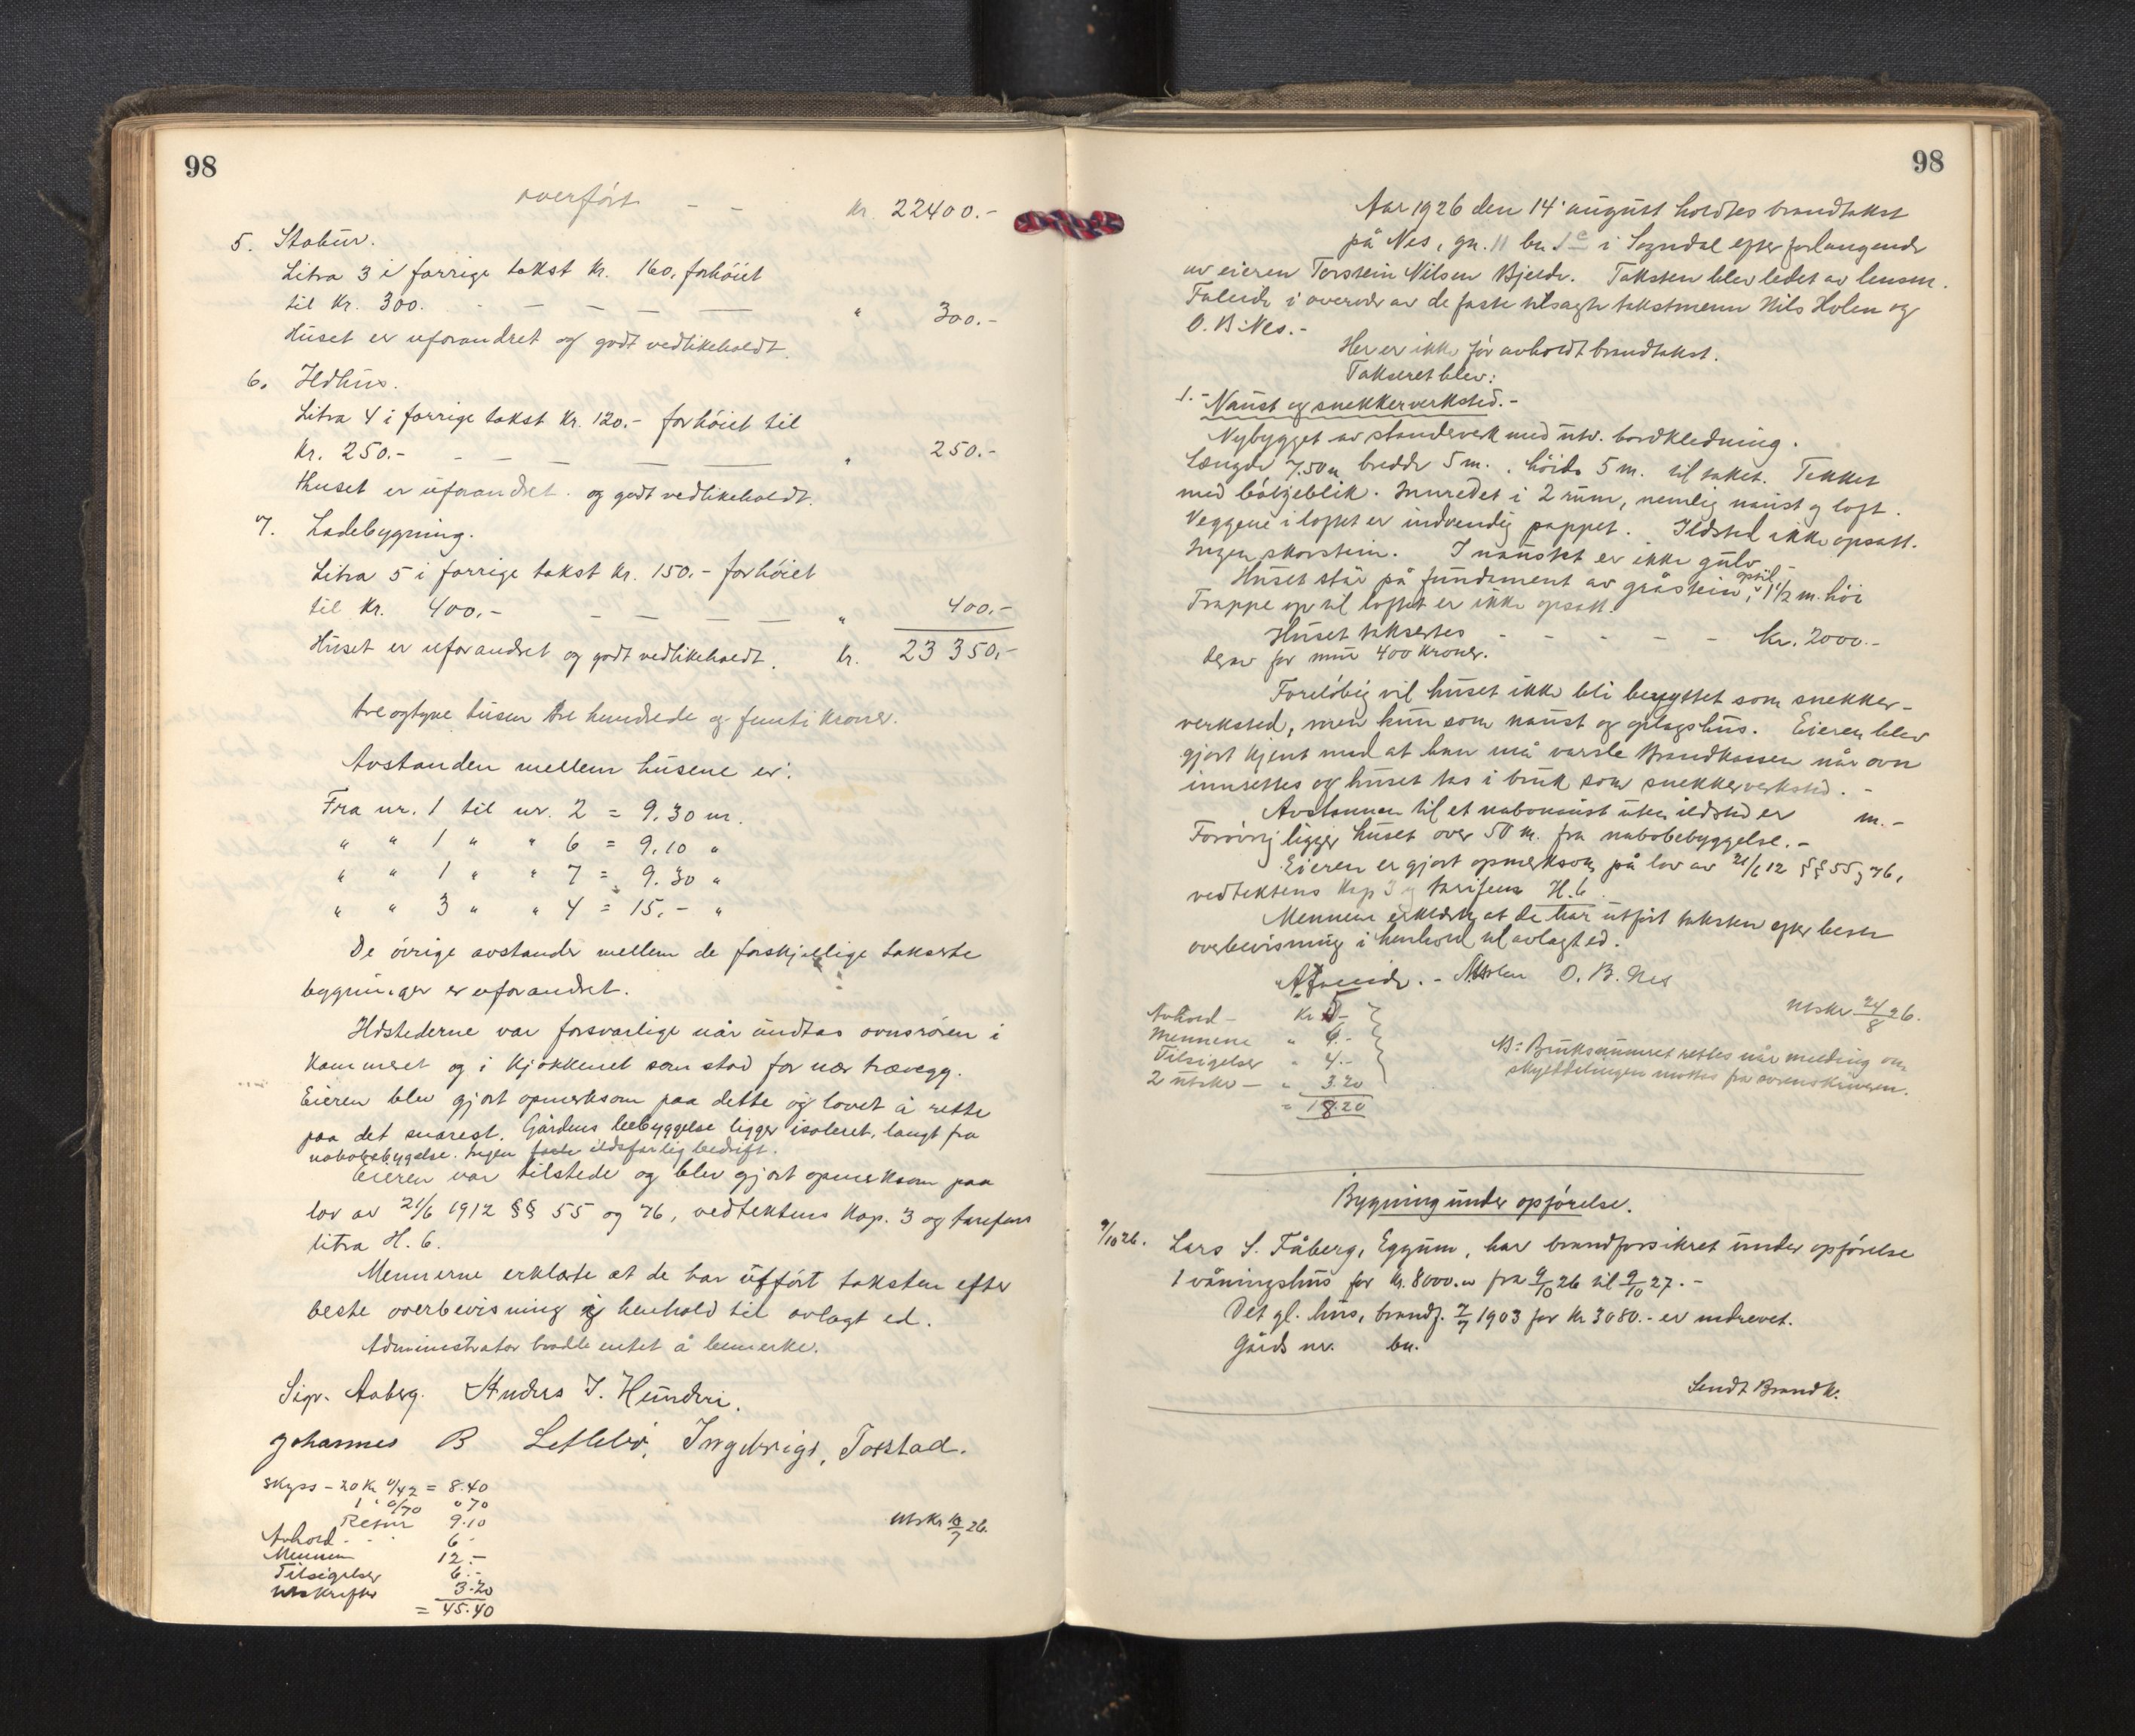 98
overført - - kr. 22400.-
5. Stabur.
Litra 3 i forrige takst kr. 160, forhöiet
til kr. 300. - — — — — " 300.-
Huset er uforandret og godt vedlikeholdt.
6. Ildhus.
Litra 4 i forrige takst kr. 120.- forhöiet til
kr. 250.- - — — — " 250.-
Huset er uforandret og godt vedlikeholdt.
7. Ladebygning.
Litra 5 i forrige takst kr. 150.- forhöiet
til kr. 400,- — — — — " 400.-
Huset er uforandret og godt vedlikeholdt. kr. 23350,-
tre og tyve tusen tre hundrede og femti kroner.
Avstanden mellem husene er:
Fra nr. 1 til nr. 2 = 9.30 m.
" " 1 " " 6 = 9.10 "
" " 1 " " 7 = 9.30 "
" " 3 " " 4 = 15.- "
De övrige avstander mellem de forskjellige takserte
bygninger er uforandret.
Ildstederne var forsvarlige når undtas ovnsrören i
kammeret og i kjökkenet som stod for nær trævegg.
Eieren blev gjort opmerksom paa dette og lovet å rette
paa det snarest. Gårdens bebyggelse ligger isoleret, langt fra
nabobebygelse. Ingen ildsfarlig bedrift.
Eieren var tilstede og blev gjort opmerksom paa
lov av 21/6 1912 §§ 55 og 76, vedtektens kap. 3 og tarifens
litra H. 6.
Mennerne erklærte at de har utført taksten efter
beste overbevisning i henhold til avlagt ed.
Administrator hadde entet å bemerke.
Sigv. Aaberg. Anders J. Hunderi.
Johannes B Ingebrigt, Torstad.
Skyss - 20 km 0/42 = 8.40
1 " 0/70 " 70
Retur 9.10
Avhold - - 6 -
Mennene 12.-
Tilsigelser 6.-
utskrifter 3.20
= 45.40
utskr 10/7 26.
98
Aar 1926 den 14' august holdtes brandtakst
på Nes, gn. 11 bn. 1 i Sogndal efter forlangende
av eieren Torstein Nilsen Bjelde. Taksten blev ledet av lensm.
Faleide i overvær av de faste tilsagte takstmenn Nils Holen og
O. B. Nes.-
Her er ikke för avholdt brandtakst.
Takseret blev:
1.- Naust og snekkerverksted.-
Nybygget av standerverk med utv. bordkledning.
Længde 7.50 m bredde 5 m. , höide 5 m. til taket. Tekket
med bölgeblik. Innredet i 2 rum, nemlig naust og loft.
Veggene i loftet er indvendig pappet. Ildsted ikke opsatt.
Ingen skorstein. I naustet er ikke gulv. -
Huset står på fundament av gråstein, optil 1 1/2 m. höi
Trappe op til loftet er ikke opsatt.
Huset takseres - - - - - kr. 2000.-
derav for mur 400 kroner.
Foreløbig vil huset ikke bli benyttet som snekker-
verksted, men kun som naust og oplagshus. Eieren blev
gjort kjent med at han må varsle Brandkassen når ovn
innsettes og huset tas i bruk som snekkerverksted. -
Avstannen til et nabonaust uten ildsted er m.-
Forövrig ligger huset over 50 m. fra nabobebyggelse. -
Eieren er gjort opmerksom på lov av 21/6 12 §§ 55 og 76,
vedtektens kap 3 og tarifens H. 6
Mennene erklærte at de har utført taksten efter beste
overbevisning i henhold til avlagt ed.
AFaleide. - NHolen O. B. Nes
utskr 24/8 26.
Avhold - kr 5.-
Mennene " 6.-
Tilsigelser " 4.-
2 utskr — " 3.20
= 18.20
NB: Bruksnumret rettes når melding om
skylddelingen mottas fra sorenskriveren.
Bygning under opförelse.
9/10 26. Lars S. Fåberg, Eggum, har brandforsikret under opförelse
1 våningshus for kr. 8000.- fra 9/10 26 til 9/10 27. -
Det gl. hus, brandf. 2/7 1903 for kr 3080.- er nedrevet.
Gårds nr. bn.
Sendt Brandk.